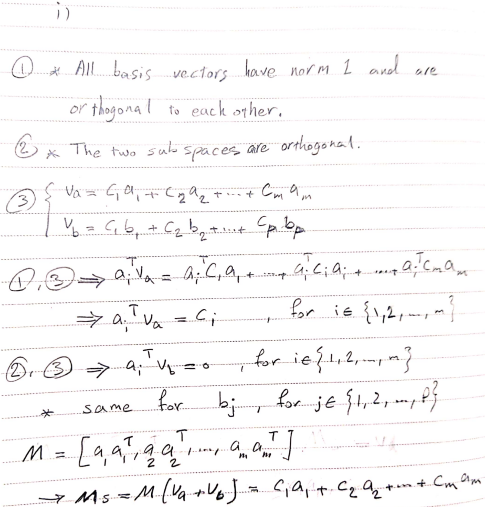 i)
① * All basis vectors have norm 1 and are
orthogonal to each other.
② * The two subspaces are orthogonal.
③ { Va = C₁a₁ + C₂a₂ + ... + Cₘaₘ
V_b = C₁b₁ + C₂b₂ + ... + Cₚbₚ
①, ③ ⇒ aᵢᵀVa = aᵢᵀC₁a₁ + ..., + aᵢᵀCᵢaᵢ + ..., + aᵢᵀCₘaₘ
⇒ aᵢᵀVa = Cᵢ , for i∈{1,2,...,m}
②, ③ ⇒ aᵢᵀV_b = 0 , for i∈{1,2,...,m}
* same for bⱼ , for j∈{1,2,...,P}
M = [a₁a₁ᵀ, a₂a₂ᵀ, ..., aₘaₘᵀ]
→ Ms = M(Va+V_b) = C₁a₁ + C₂a₂ + ... + Cₘaₘ